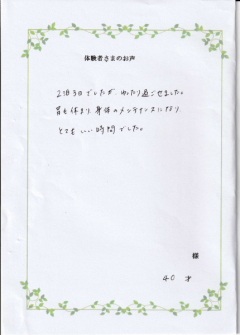 体験者さまのお声
2泊3日でしたが、ゆったり過ごせました。
胃も休まり、身体のメンテナンスになり、
とてもいい時間でした。
様
40才